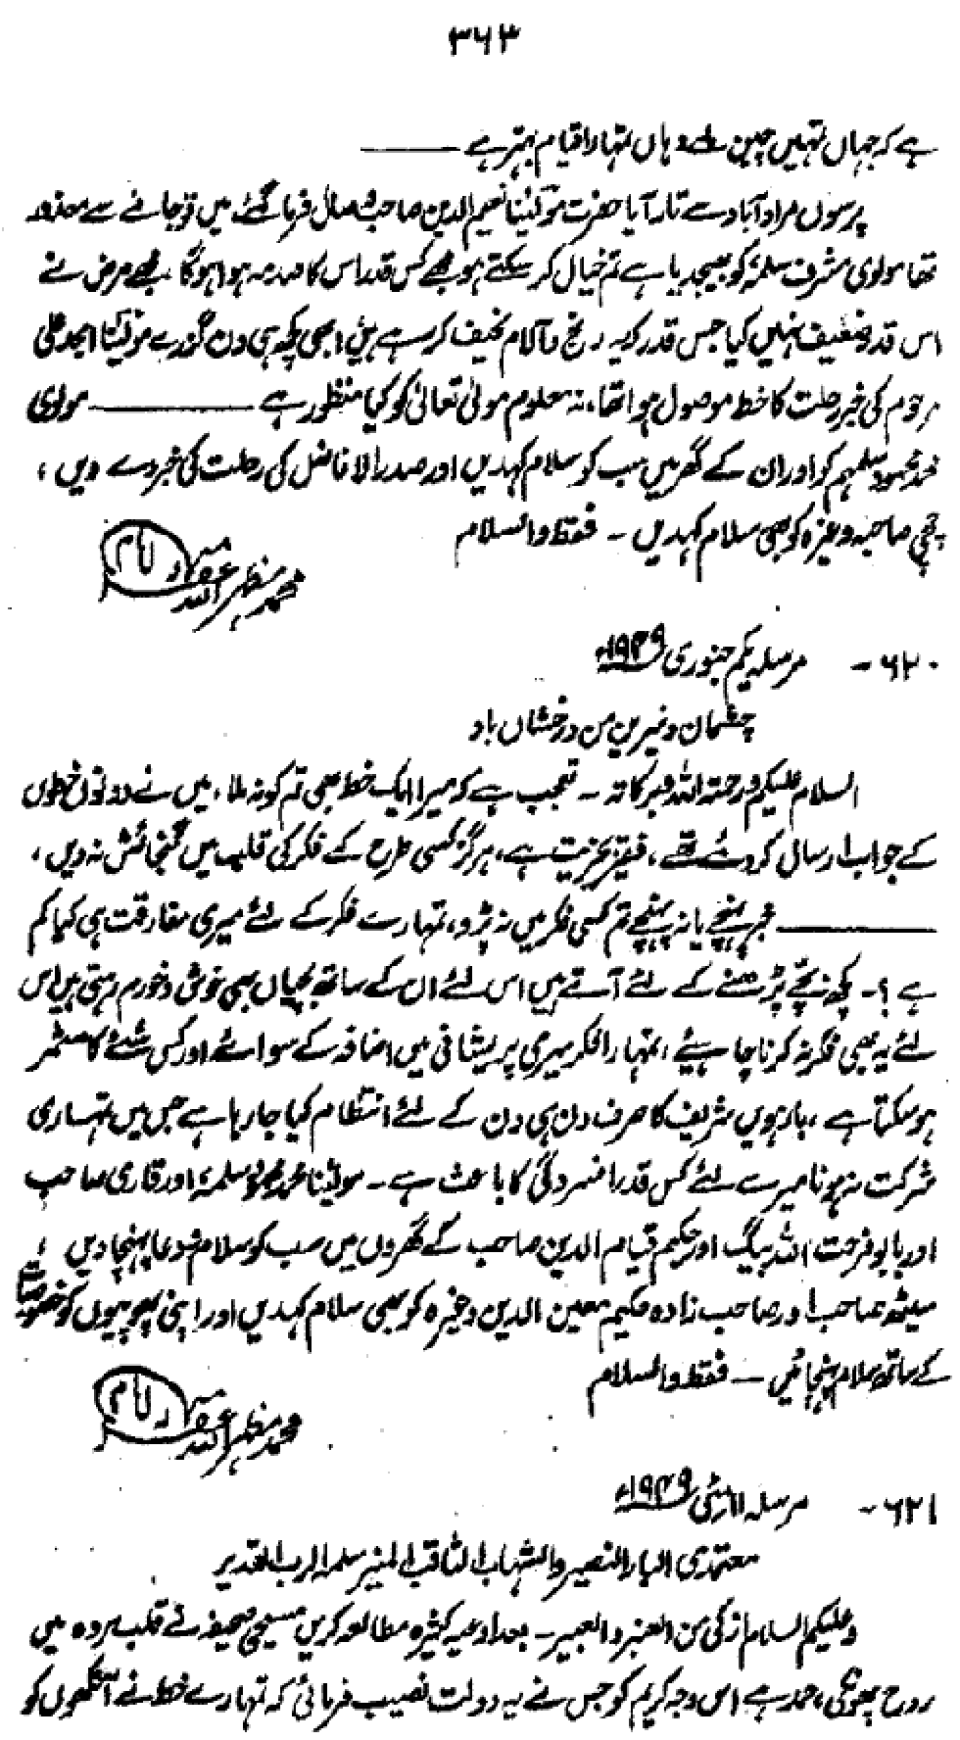 ۳۶۳
ہے کہ جہاں تمہیں چین ملے وہاں تمہارا قیام بہتر ہے ———
پرسوں مراد آباد سے تار آیا حضرت مولٰینا نعیم الدین صاحب وصال فرما گئے، میں تو جانے سے معذور
تھا مولوی مشرف سلمہٗ کو بھیجدیا ہے تم خیال کر سکتے ہو مجھے کس قدر اس کا صدمہ ہوا ہوگا مجھے مرض نے
اس قدر ضعیف نہیں کیا جس قدر کہ یہ رنج و آلام نحیف کر رہے ہیں ابھی کچھ ہی دن گزرے مولٰینا امجد علی
مرحوم کی خبر رحلت کا خط موصول ہوا تھا، نہ معلوم مولٰی تعالٰی کو کیا منظور ہے ——— مولوی
محمد محمود سلمہم کو اور ان کے گھر میں سب کو سلام کہدیں اور صدر الافاضل کی رحلت کی خبر دے دیں ؛
چچی صاحبہ وغیرہ کو بھی سلام کہدیں ۔ فقط والسلام
محمد مظہر اللہ غفرلہ امام
۶۲۰ ۔ مرسلہ یکم جنوری ۱۹۴۹ء
چشمان و نیرین من درخشاں باد
السلام علیکم ورحمۃ اللہ وبرکاتہ ۔ تعجب ہے کہ میرا ایک خط بھی تم کو نہ ملا، میں نے دونوں خطوں
کے جواب ارسال کر دئے تھے، فقیر بخیریت ہے، ہرگز کسی طرح کے فکر کی قلب میں گنجائش نہ دیں،
——— خبر پہنچے یا نہ پہنچے تم کسی فکر میں نہ پڑو، تمہارے فکر کے لئے میری مفارقت ہی کیا کم
ہے ؟ ۔ کچھ بچے پڑھنے کے لئے آتے ہیں اس لئے ان کے ساتھ بچیاں بھی خوش و خرم رہتی ہیں اس
لئے یہ بھی فکر نہ کرنا چاہیئے، تمہارا فکر میری پریشانی میں اضافہ کے سوائے اور کس شئے کا مثمر
ہو سکتا ہے، بارہویں شریف کا صرف دن ہی دن کے لئے انتظام کیا جا رہا ہے جس میں تمہاری
شرکت نہ ہونا میرے لئے کس قدر افسردگی کا باعث ہے ۔ مولٰینا محمد محمود سلمہٗ اور قاری صاحب
اور بابو فرحت اللہ بیگ اور حکیم قیام الدین صاحب کے گھروں میں سب کو سلام و دعا پہنچا دیں ؛
سیٹھ صاحب اور صاحب زادہ حکیم معین الدین وغیرہ کو بھی سلام کہدیں اور اپنی پھوپیوں کو خصوصیت
کے ساتھ سلام پہنچائیں ۔ فقط والسلام
محمد مظہر اللہ غفرلہ امام
۶۲۱ ۔ مرسلہ ۱۱ مئی ۱۹۴۹ء
معتمدی البار النصیر والشہاب الثاقب المنیر سلمہ الرب القدیر
وعلیکم السلام ازکی من العنبر والعبیر ۔ بعد ادعیہ کثیرہ مطالعہ کریں مسیحی صحیفہ نے قلب مردہ میں
روح پھونکی، حمد ہے اس وجہ کریم کو جس نے یہ دولت نصیب فرمائی کہ تمہارے خط نے آنکھوں کو